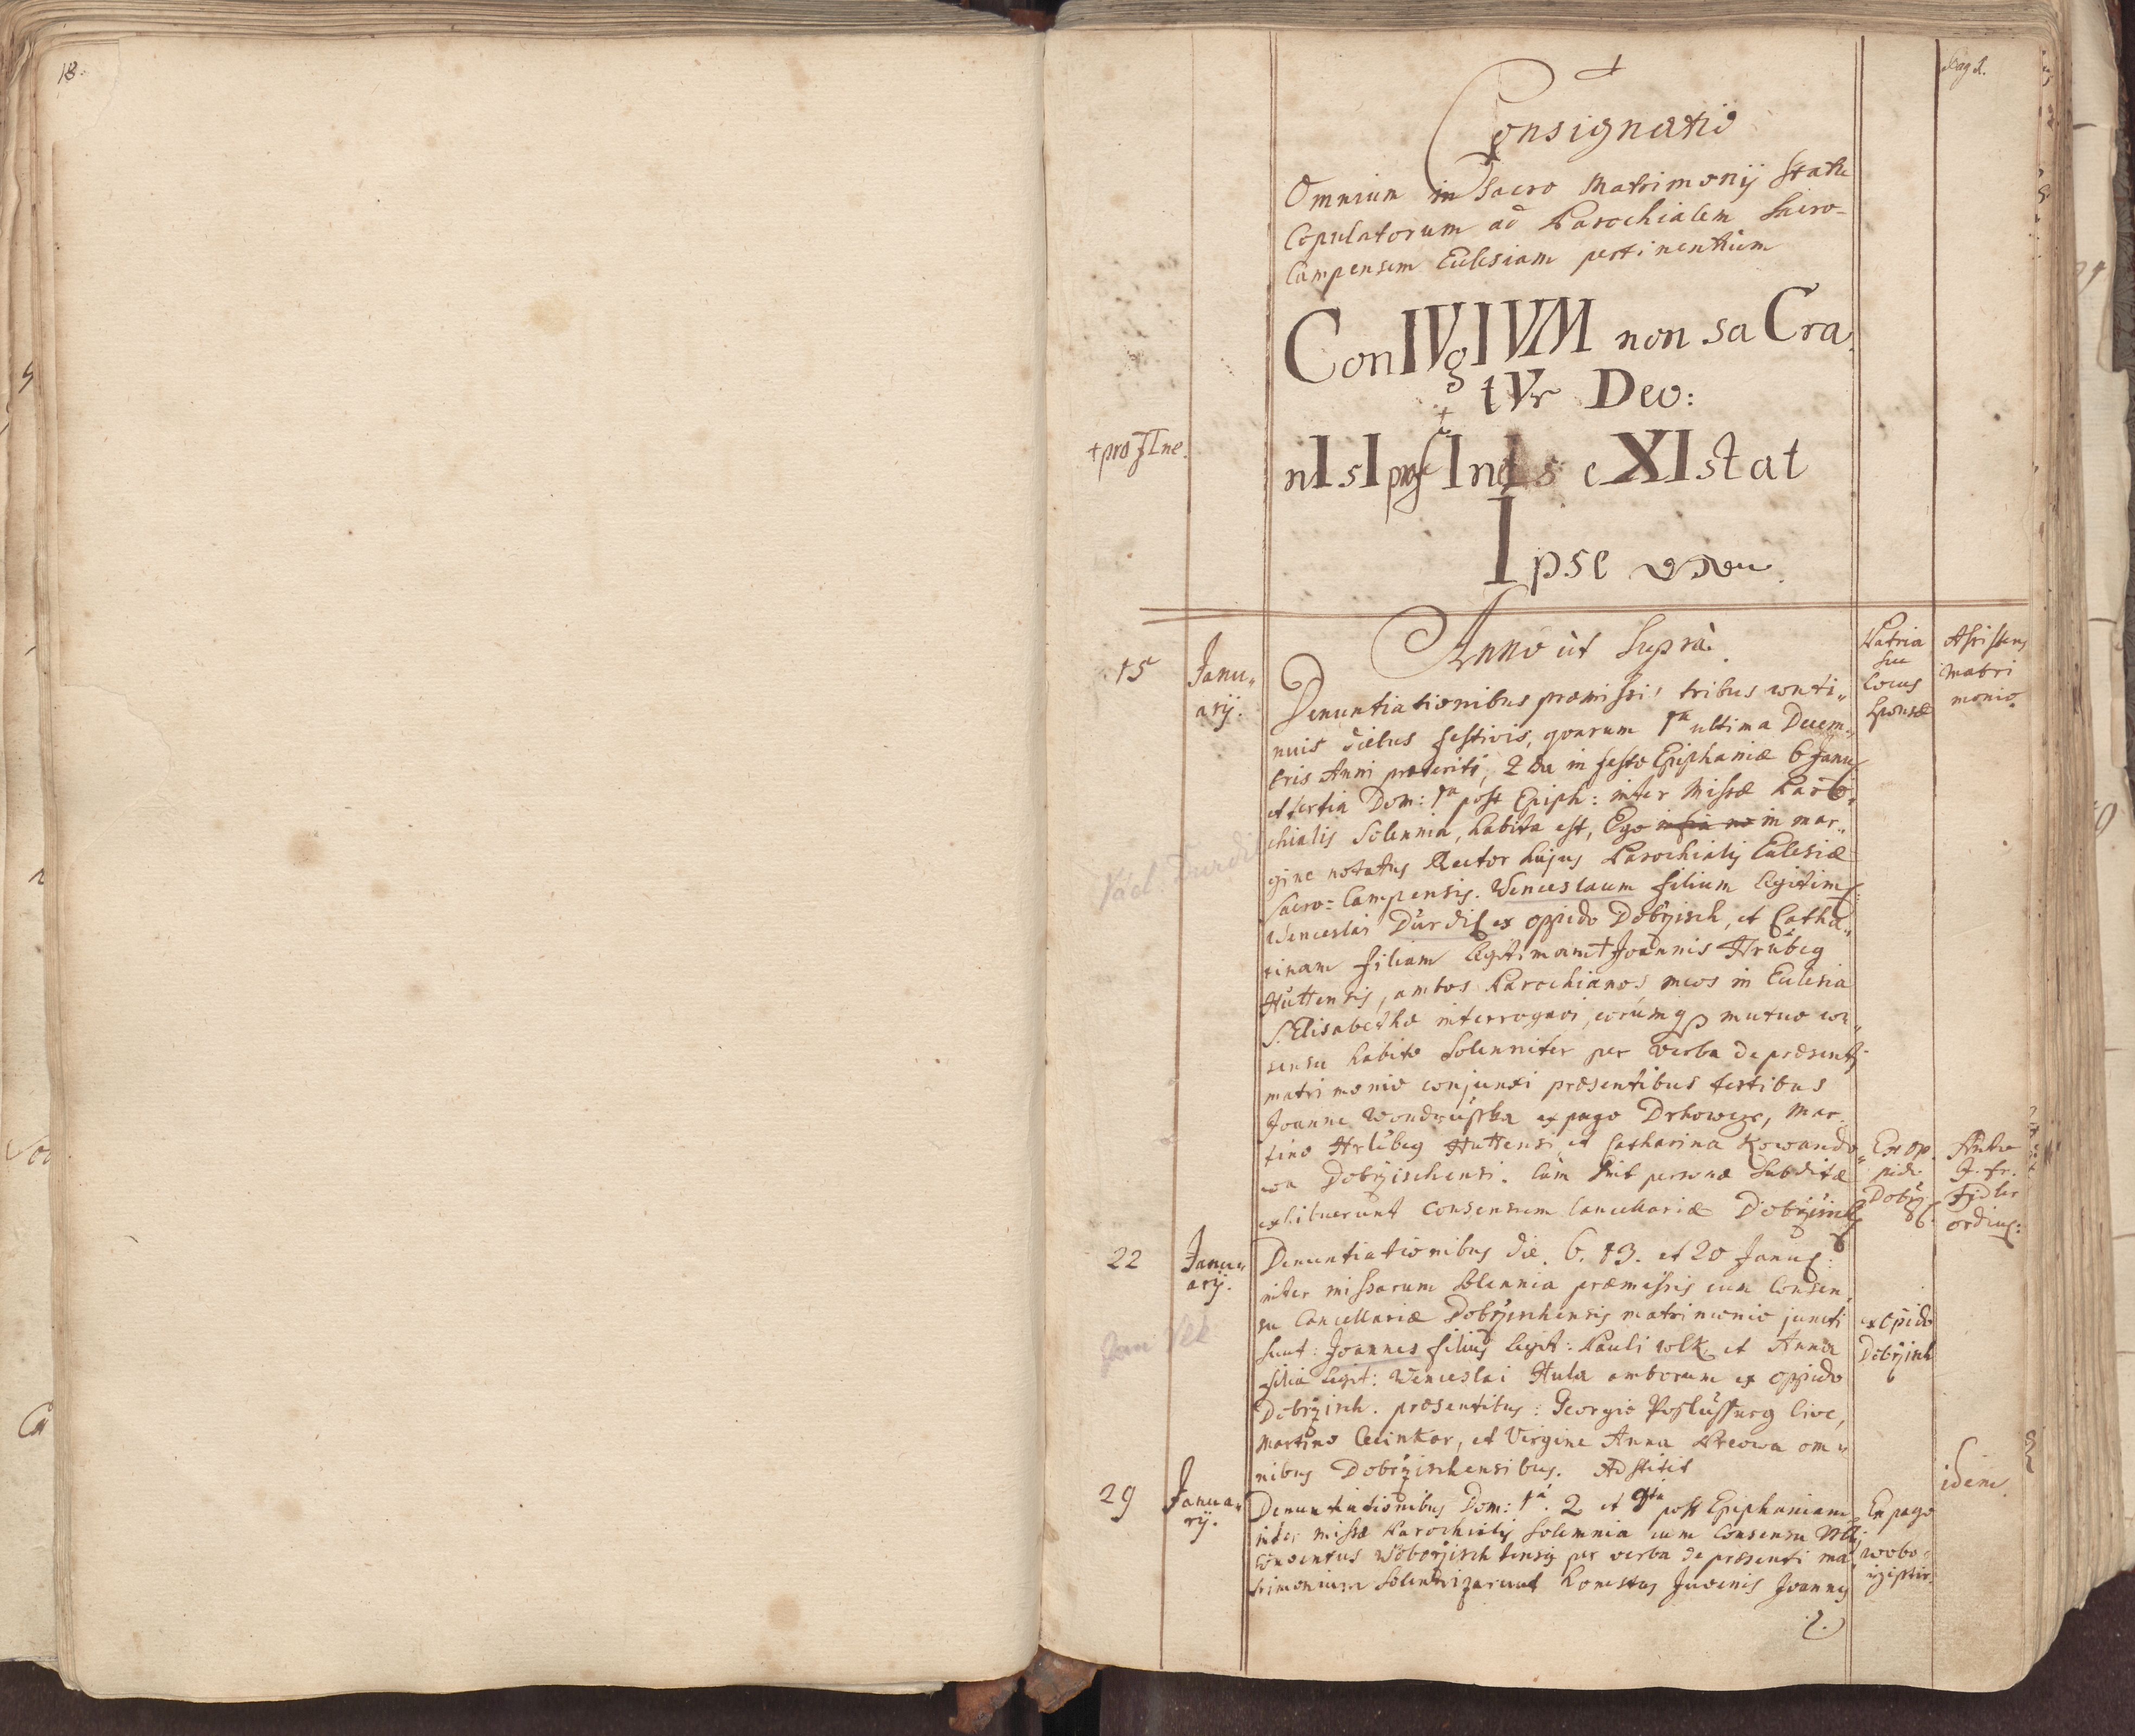 18.
Pag 1.
Consignatio
Omnium in Sacro Matrimonij Statu
Copulatorum ad Parochialem Sacro-
Campensem Ecclesiam pertinentium
ConIVgIVM non saCra
tVr Deo:
nIsI pro fIne eXIstat
+ pro fIne.
Ipse
Anno ut Supra.
Patria
seu
Locus
sponsæ
Assistens
matri
monio.
15 Janu„
arij.
Denuntiationibus præmissis tribus conti„
nuis diebus festivis, quarum 1ma ultima Decem„
bris Anni præteriti, 2da in festo Epiphaniæ 6 Januar
et tertia Dom: 1a post Epiph: inter Missæ Paro„
chialis Solennia, habita est, Ego in mar„
gine notatus Rector hujus Parochialis Ecclesiæ
Sacro=Campensis. Wenceslaum filium legitim:
Václ. Durdil
Wenceslai Durdil ex oppido Dobrzisch, et Catha„
rinam filiam legitimam + Joannis Hrubeg
Huttensis, ambos Parochianos meos in Ecclesia
S. Elisabethæ interrogavi, eorumq mutuo con„
sensu habito Solenniter per verba de præsenti
matrimonio conjunxi præsentibus testibus
Joanne Wondrusska ex pago Drhowcze, Mar„
tino Hrubeg Huttensi et Catharina Kowando„
wa Dobrzischensi. Cum sint personæ Subditæ
exhibuerunt Consensum Cancellariæ Dobrzisch
Ex op„
pido
Dobrz
Anto
J. fr.
Fidler
ordin:
22 Janu„
arij.
Denuntiationibus die 6. 13. et 20 Januar:
inter missarum Solennia præmissis cum Consen„
su Cancellariæ Dobrzischensis matrimonio juncti
sunt: Joannes filius legit: Pauli wlk et Anna
Jan Vlk
filia legit: Wenceslai Hula amborum ex oppido
Dobrzisch. præsentibus: Georgio Poslussneg Cive,
Martino Cecinkar, et Virgine Anna om„
nibus Dobrzischensibus. Adstitit
ex opido
Dobrzisch
idem.
29 Janua„
rij.
Denuntiationibus Dom: 1a. 2 et 3tia post Epiphaniam
inter missæ Parochialis Solemnia cum Consensu
Conventus Woborzischtensis per verba de præsenti ma„
trimonium Solennizarunt honestus Juvenis Joannes
Ex pago
wobo„